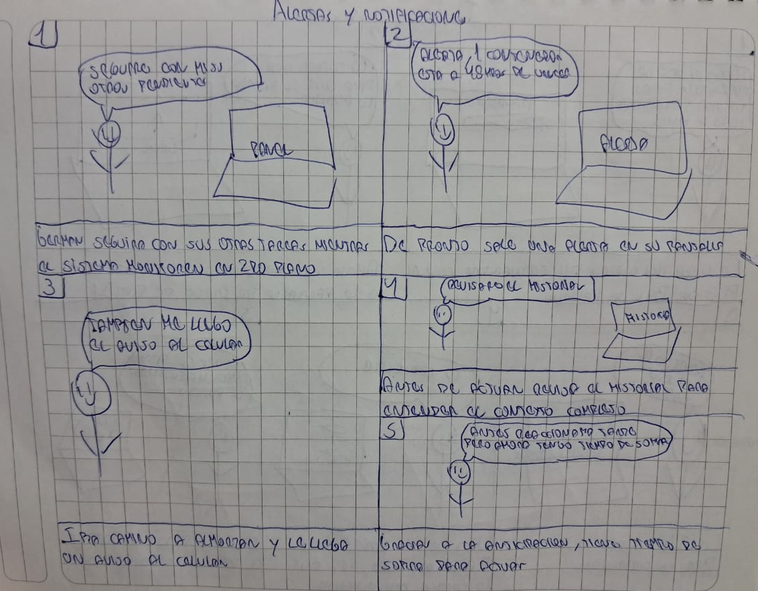 ALERTAS Y NOTIFICACIONE
1
SEGUIRE CON MISS
OTROS PENDIENTES
PANEL
GERMAN SEGUIRA CON SUS OTRAS TAREAS MIENTRAS
EL SISTEMA MONITOREA EN 2DO PLANO
2
ALERTA, 1 CONTENEDOR
ESTA A 48 HORAS DE VENCER
ALERTA
DE PRONTO SALE UNA ALERTA EN SU PANTALLA
3
TAMBIEN ME LLEGO
EL AVISO AL CELULAR
IBA CAMINO A ALMORZAR Y LE LLEGA
UN AVISO AL CELULAR
4
REVISARE EL HISTORIAL
HISTORIAL
ANTES DE ACTUAR REVISA EL HISTORIAL PARA
ENTENDER EL CONTEXTO COMPLETO
5
ANTES REACCIONABA TARDE
PERO AHORA TENGO TIEMPO DE SOBRA
GRACIAS A LA ANTICIPACION, TIENE TIEMPO DE
SOBRA PARA ACTUAR